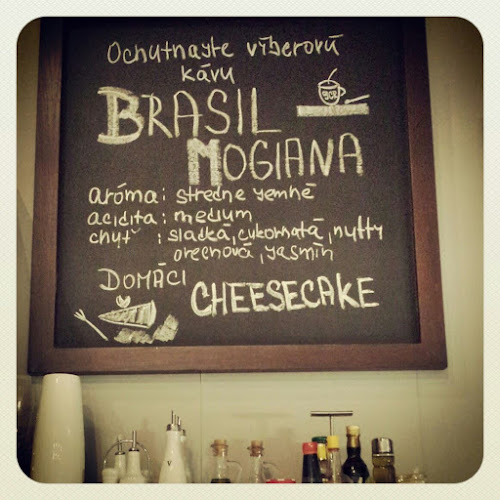 Ochutnayte víberovú
kávu
BRASIL
MOGIANA
aróma: stredne yemné
acidita: medium
chuť : sladká, cukornatá, nutty
orechová, yasmín
DOMÁCI
CHEESECAKE